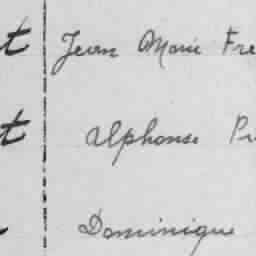 t Jean Marie Fre
t Alphonse Pr
Dominique